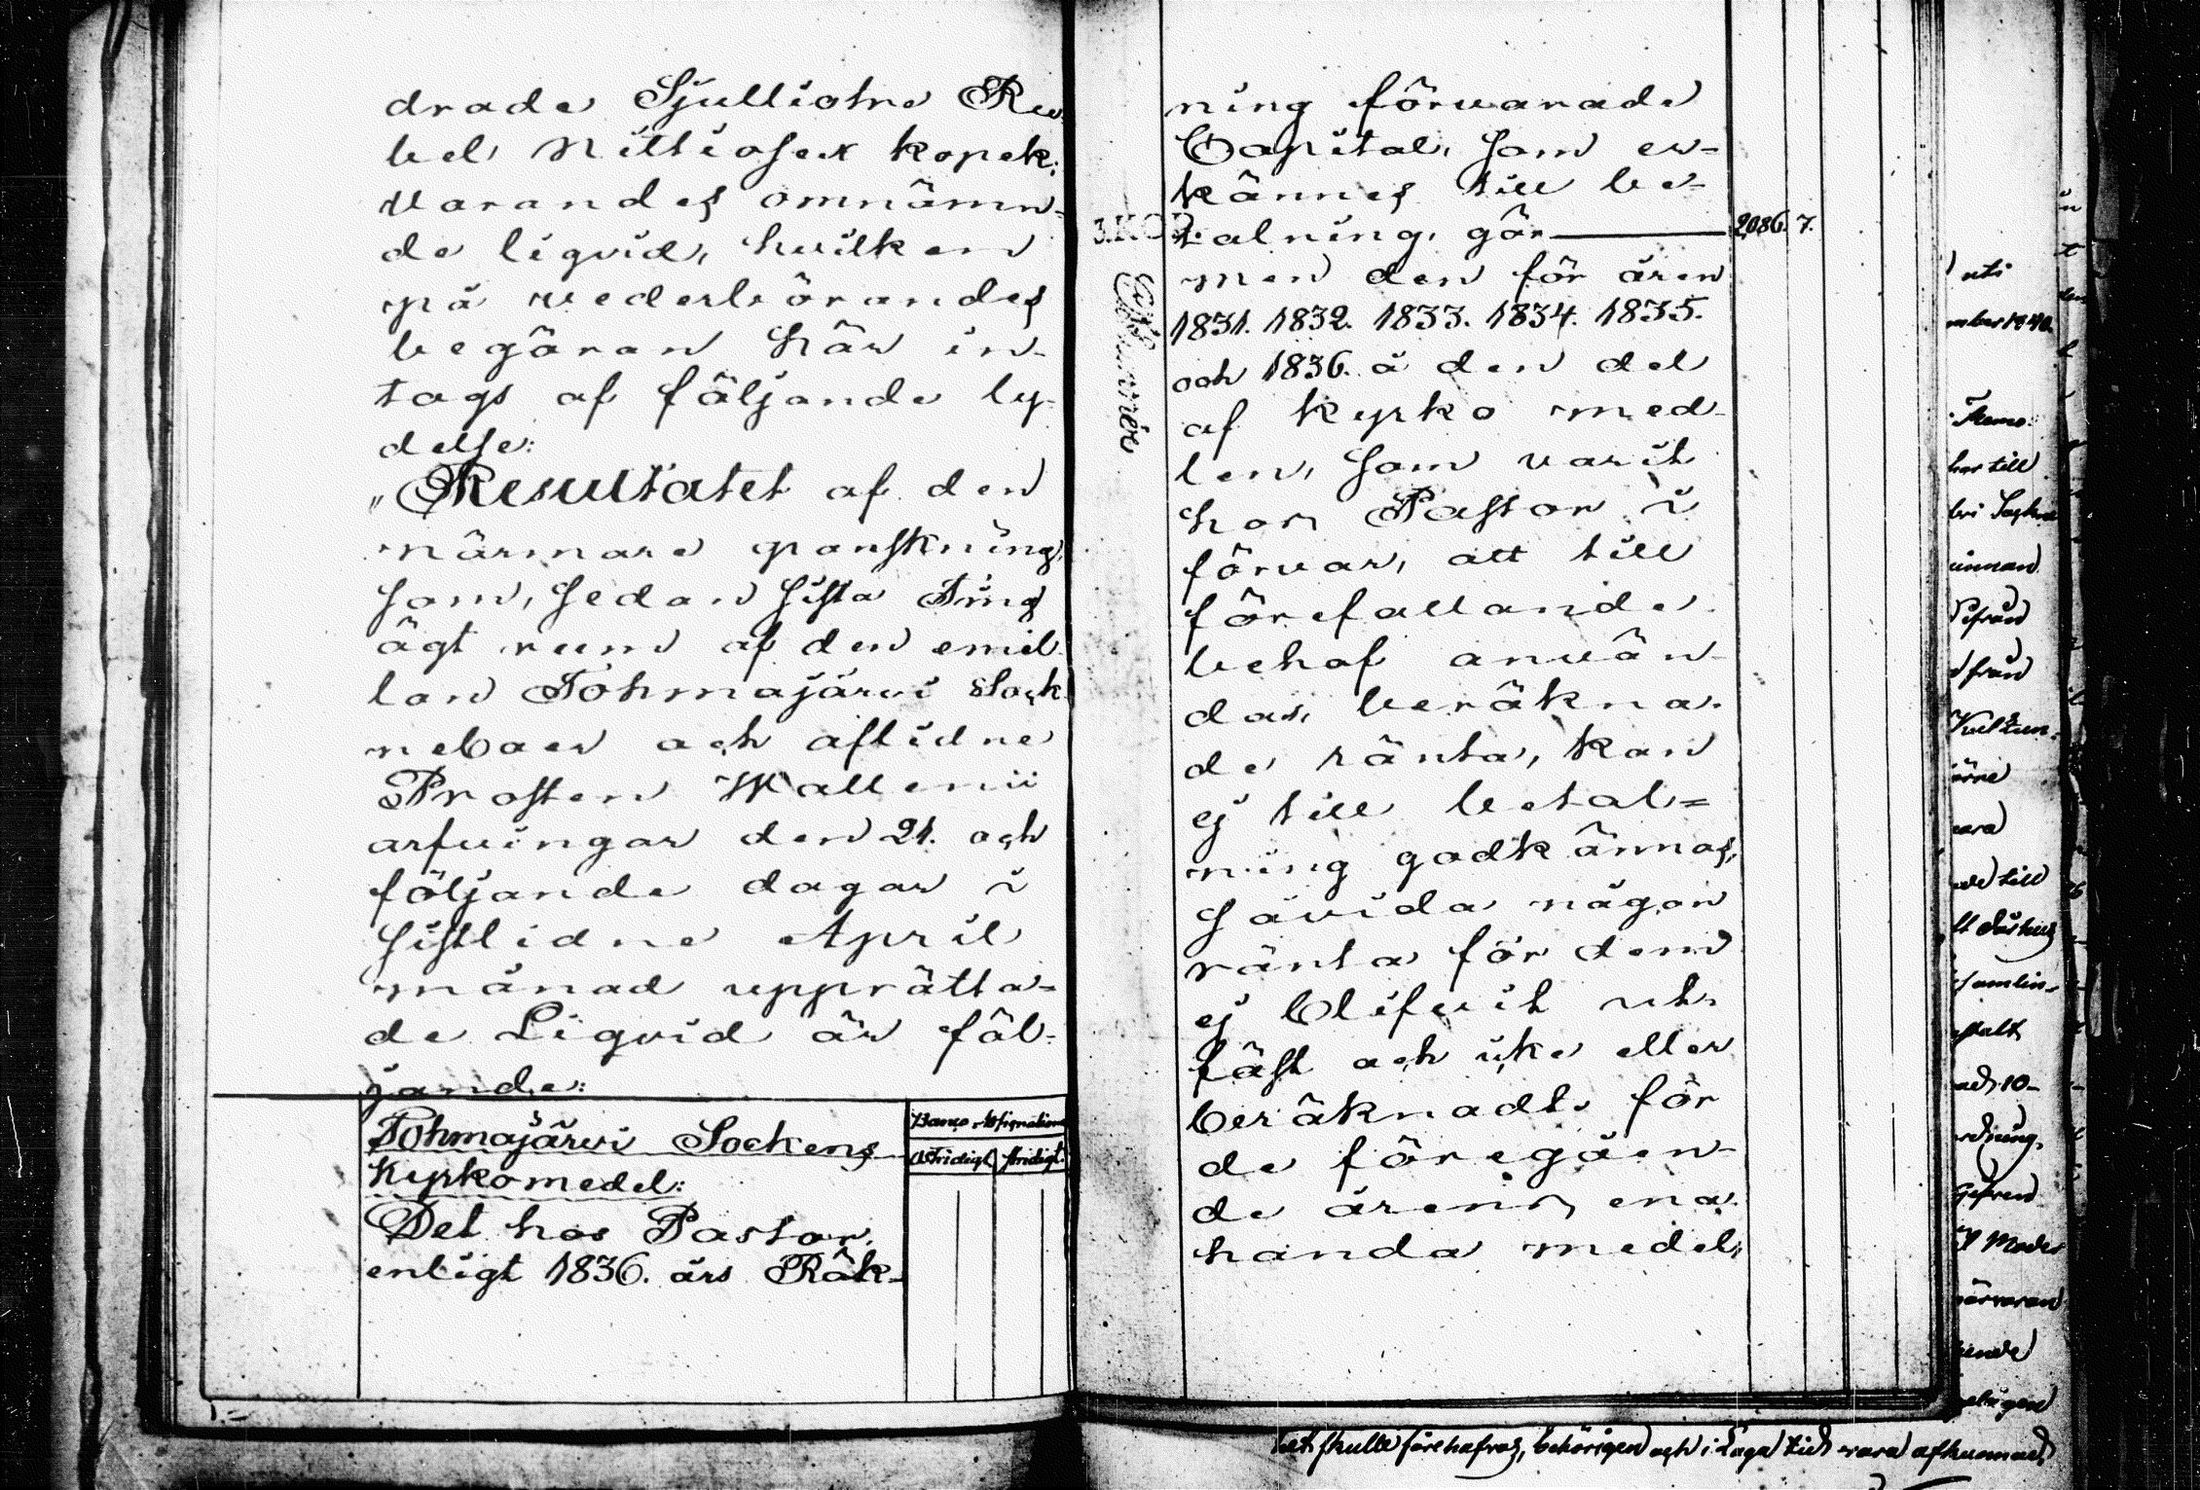 drade Sjuttiotre Ru-
bel Nittiosex kopek;
varandes omnämn-
de liqvid, hvilken
på vederbörandes
begäran här in-
tags af följande ly-
delse:
"Resultatet af den
närmare granskning,
som, sedan sista Ting
ägt rum af den emel-
lan Tohmajärvi Sock-
neboer och aflidne
Prosten Wallenii
arfvingar den 21. och
följande dagar i
sistlidne April
månad upprätta-
de Liqvid är föl-
jande:
Tohmajärvi Sockens
Kyrkomedel:
Banco Assignationer
Ostridigt stridigt.
Det hos Pastor,
enligt 1836. års Räk-
ning förvarade
Capital, som er-
kännes till be-
3. KOP.
talning, gör 2,086. 7.
men den för åren
1831. 1832. 1833. 1834. 1835.
och 1836. å den del
af kyrko med-
len, som varit
hos Pastor i
förvar, att till
förefallande
behof använ-
das, beräkna-
de ränta, kan
ej till betal=
ning godkännas,
såvida någon
ränta för dem
ej blifvit ut-
fäst och icke eller
beräknadt, för
de föregåen-
de åren, ena-
handa medel,
uti
mber 1840.
har till
innan
ifrån
från
vara
till
samlin-
10-
ordning,
närvaran
skulle förehafvas, behörigen och i Laga tid vara afkunnadt